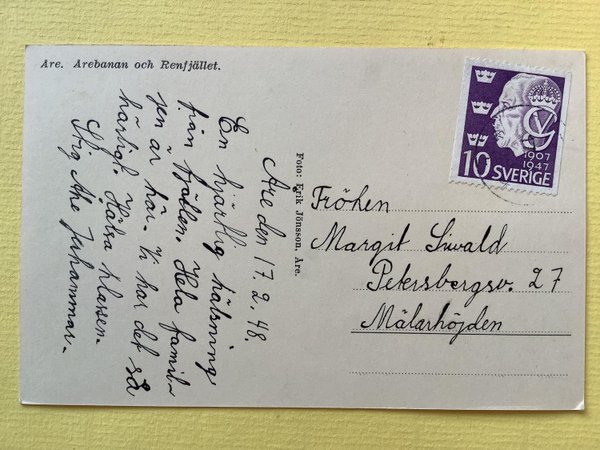 Åre. Årebanan och Renfjället.
Åre den 17.2.48.
En hjärtlig hälsning
från fjällen. Hela famil-
jen är här. Vi har det så
härligt. Hälsa klassen.
Stig Åke
Foto: Erik Jönsson, Åre.
1907
1947
10 SVERIGE
Fröken
Margit Siwald
Petersbergsv. 27
Mälarhöjden